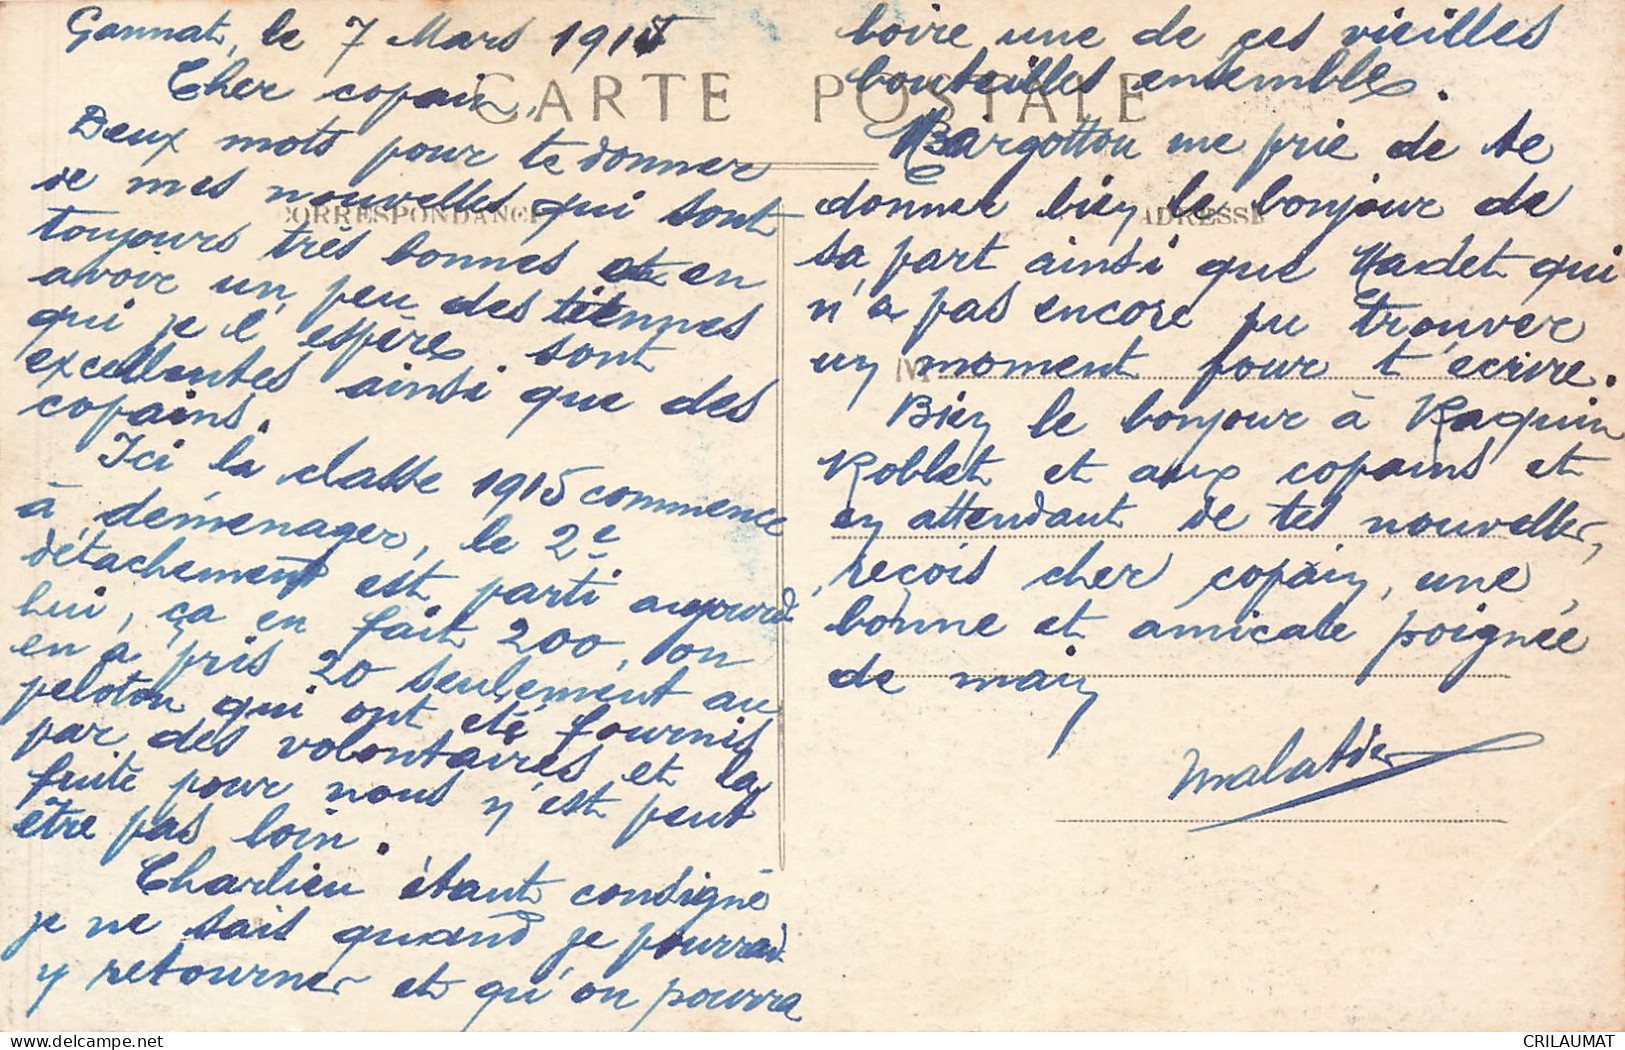 Gannat, le 7 Mars 1915
Cher copain,
CARTE POSTALE
Deux mots pour te donner
de mes nouvelles qui sont
CORRESPONDANCE
toujours très bonnes et en
avoir un peu des tiennes
qui je l'espère sont
excellentes ainsi que des
copains.
Ici la classe 1915 commence
à déménager, le 2e
détachement est parti aujourd'
hui, ça en fait 200, on
en a pris 20 seulement au
peloton qui ont été fournis
par des volontaires et la
fuite pour nous n'est peut
être pas loin.
Charlieu étant consigné
je ne sais quand je pourrai
y retourner et qu'on pourra
boire une de ces vieilles
bouteilles ensemble.
Margottou me prie de te
donner bien le bonjour de
ADRESSE
sa part ainsi que Nadet qui
n'a pas encore pu trouver
un moment pour t'ecrire.
M
Bien le bonjour à Raquin
Roblet et aux copains et
en attendant de tes nouvelles,
reçois cher copain, une
bonne et amicale poignée
de main
Malatier
CRILAUMAT